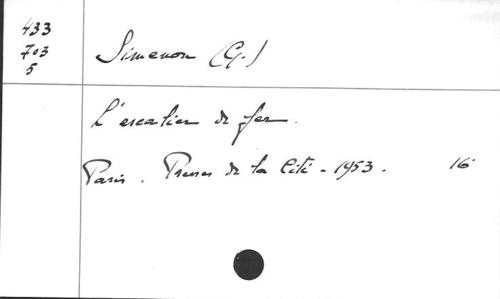 433
703
5
Simenon (G.)
L'escalier de fer.
Paris. Presses de la Cité - 1953. 16°